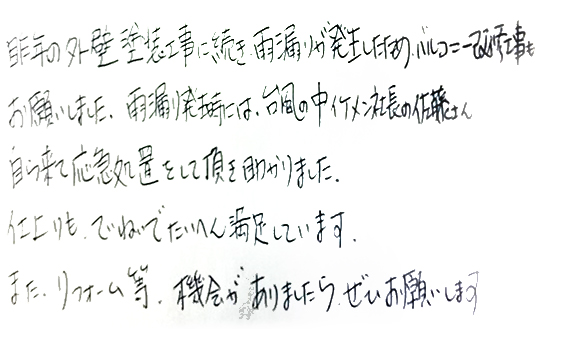 昨年の外壁塗装工事に続き、雨漏りが発生したため、バルコニー改修工事も
お願いしました。雨漏り発生時には、台風の中イケメン社長の佐藤さん
自ら来て応急処置をして頂き助かりました。
仕上りも、ていねいでたいへん満足しています。
また、リフォーム等、機会がありましたら、ぜひお願いします